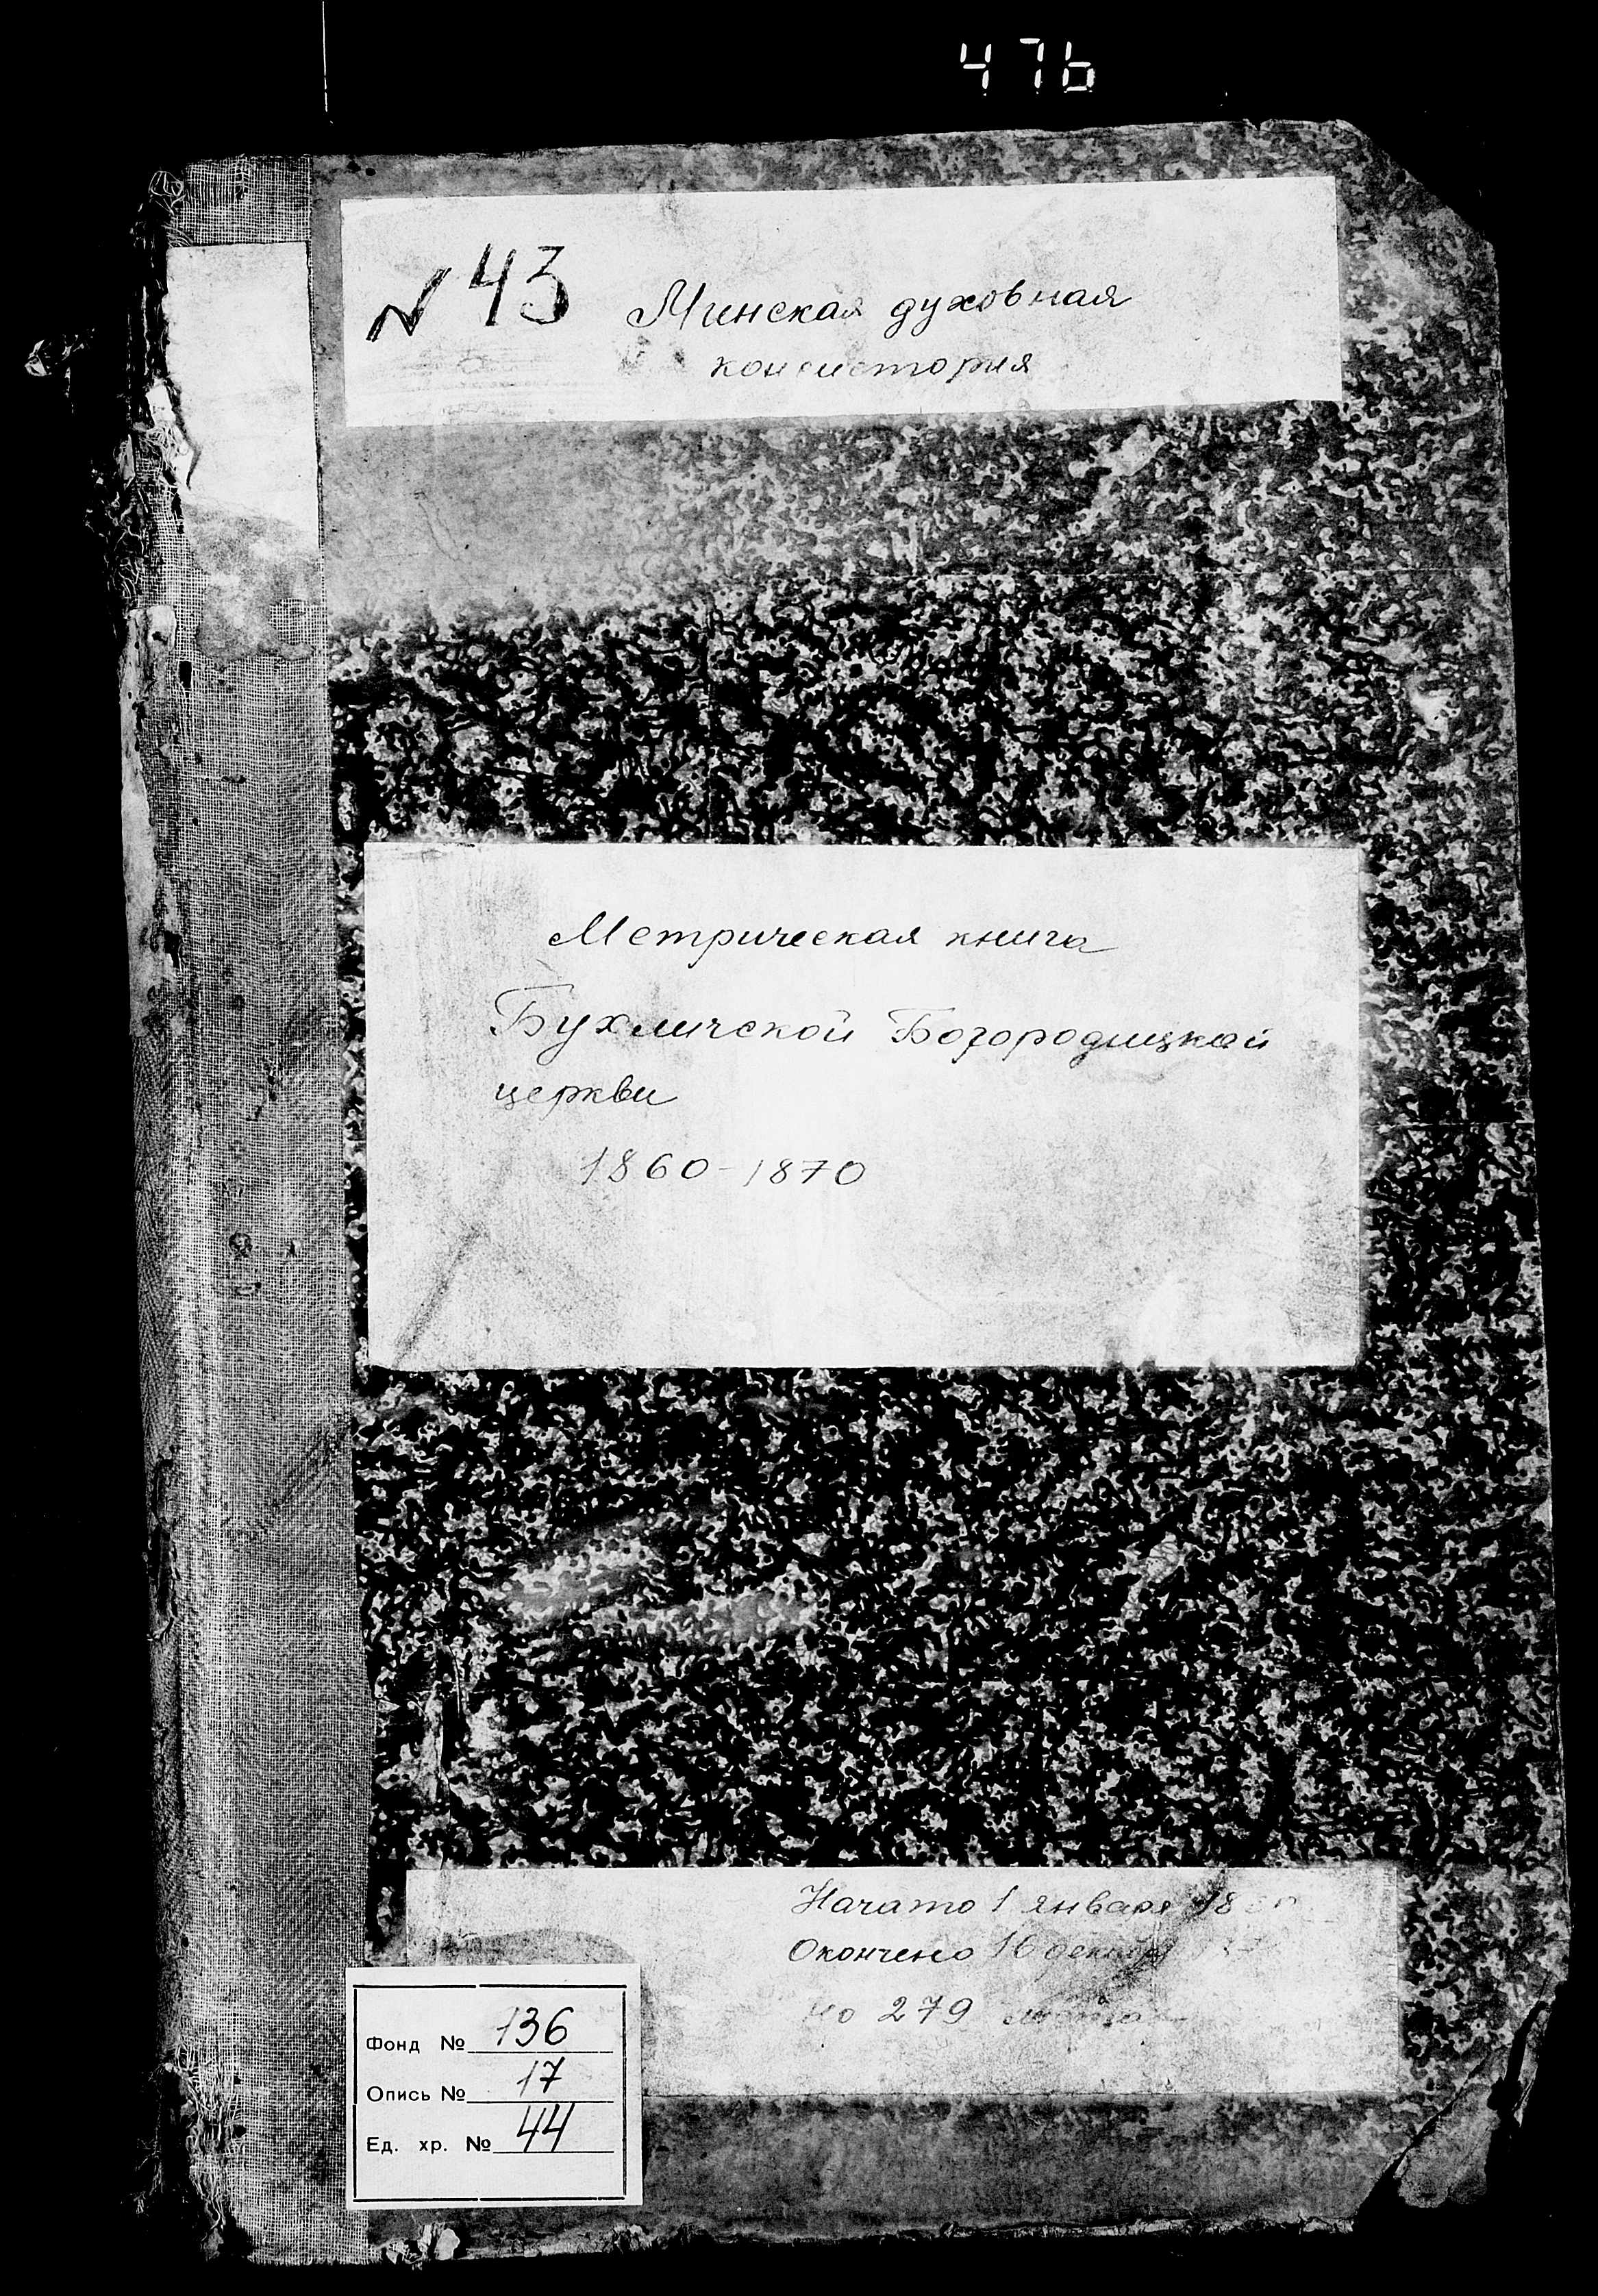 476
N 43 Минская духовная
консистория
Метрическая книга
Бухличской Богородицкой
церкви
1860-1870
Начато 1 января
Окончено 16
на 279
Фонд № 136
Опись № 17
Ед. хр. № 44